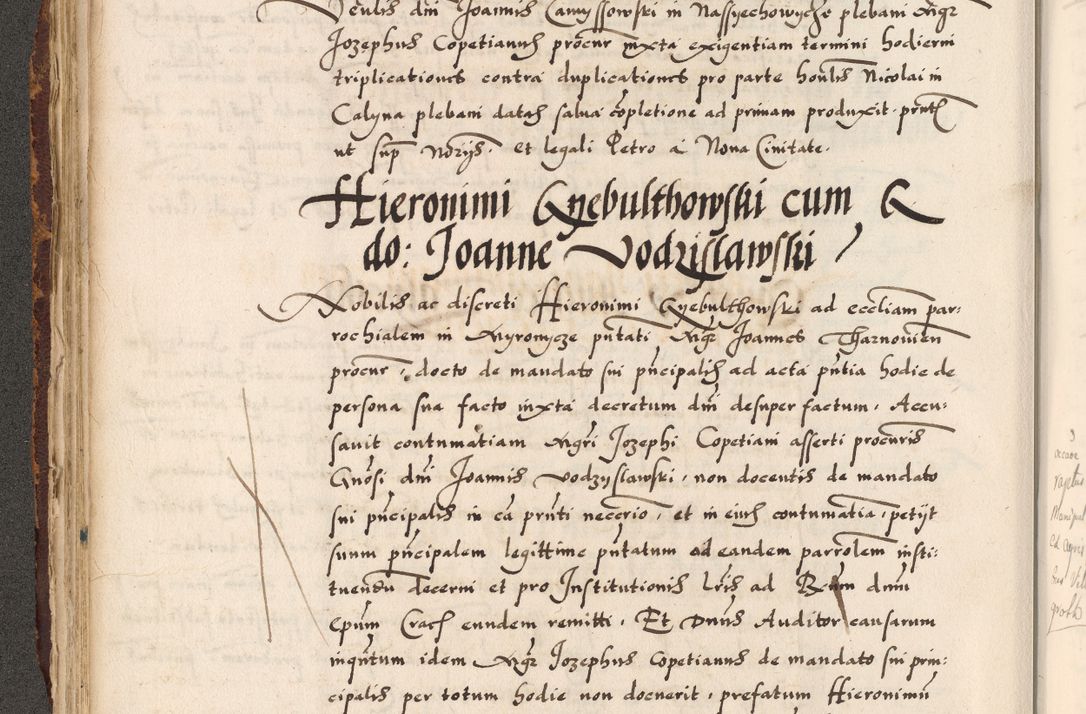 Venlis dni Joannis Camyssowski in Nassyechowycze plebani Mgr
Jozephus Copetianus procur iuxta exigentiam termini hodierni
triplicationes contra duplicationes pro parte honlis Nicolai in
Calyna plebani datas salva copletione ad primam produxit. pntib
ut sup Norijs. Et legali Petro a Nova Civitate.
Hieronimi Gyebulthowski cum
do: Joanne Vodzislawski
Nobilis ac discreti Hieronimi Gyebulthowski ad eccliam par:
rochialem in Myronycze pntati Mgr Joannes Tharnovien
procur, docto de mandato sui pncipalis ad acta pntia hodie de
persona sua facto iuxta decretum dni desuper factum, Accu:
savit contumatiam Mgri Jozephi Copetiani asserti procuris
Gnosi dni Joannis Vodzyslawski, non docentis de mandato
sui pncipalis in ca pnti neccrio, et in eius contumatia, petijt
suum pncipalem legittime pntatum ad eandem parrolem insti:
tuendu decerni et pro Institutionis lris ad Rdum dnm
Epum Crac eundem remitti, Et Dnus Auditor causarum
inqntum idem Mgr Jozephus Copetianus de mandato sui prin:
cipalis per totum hodie non docuerit, prefatum Hieronimu